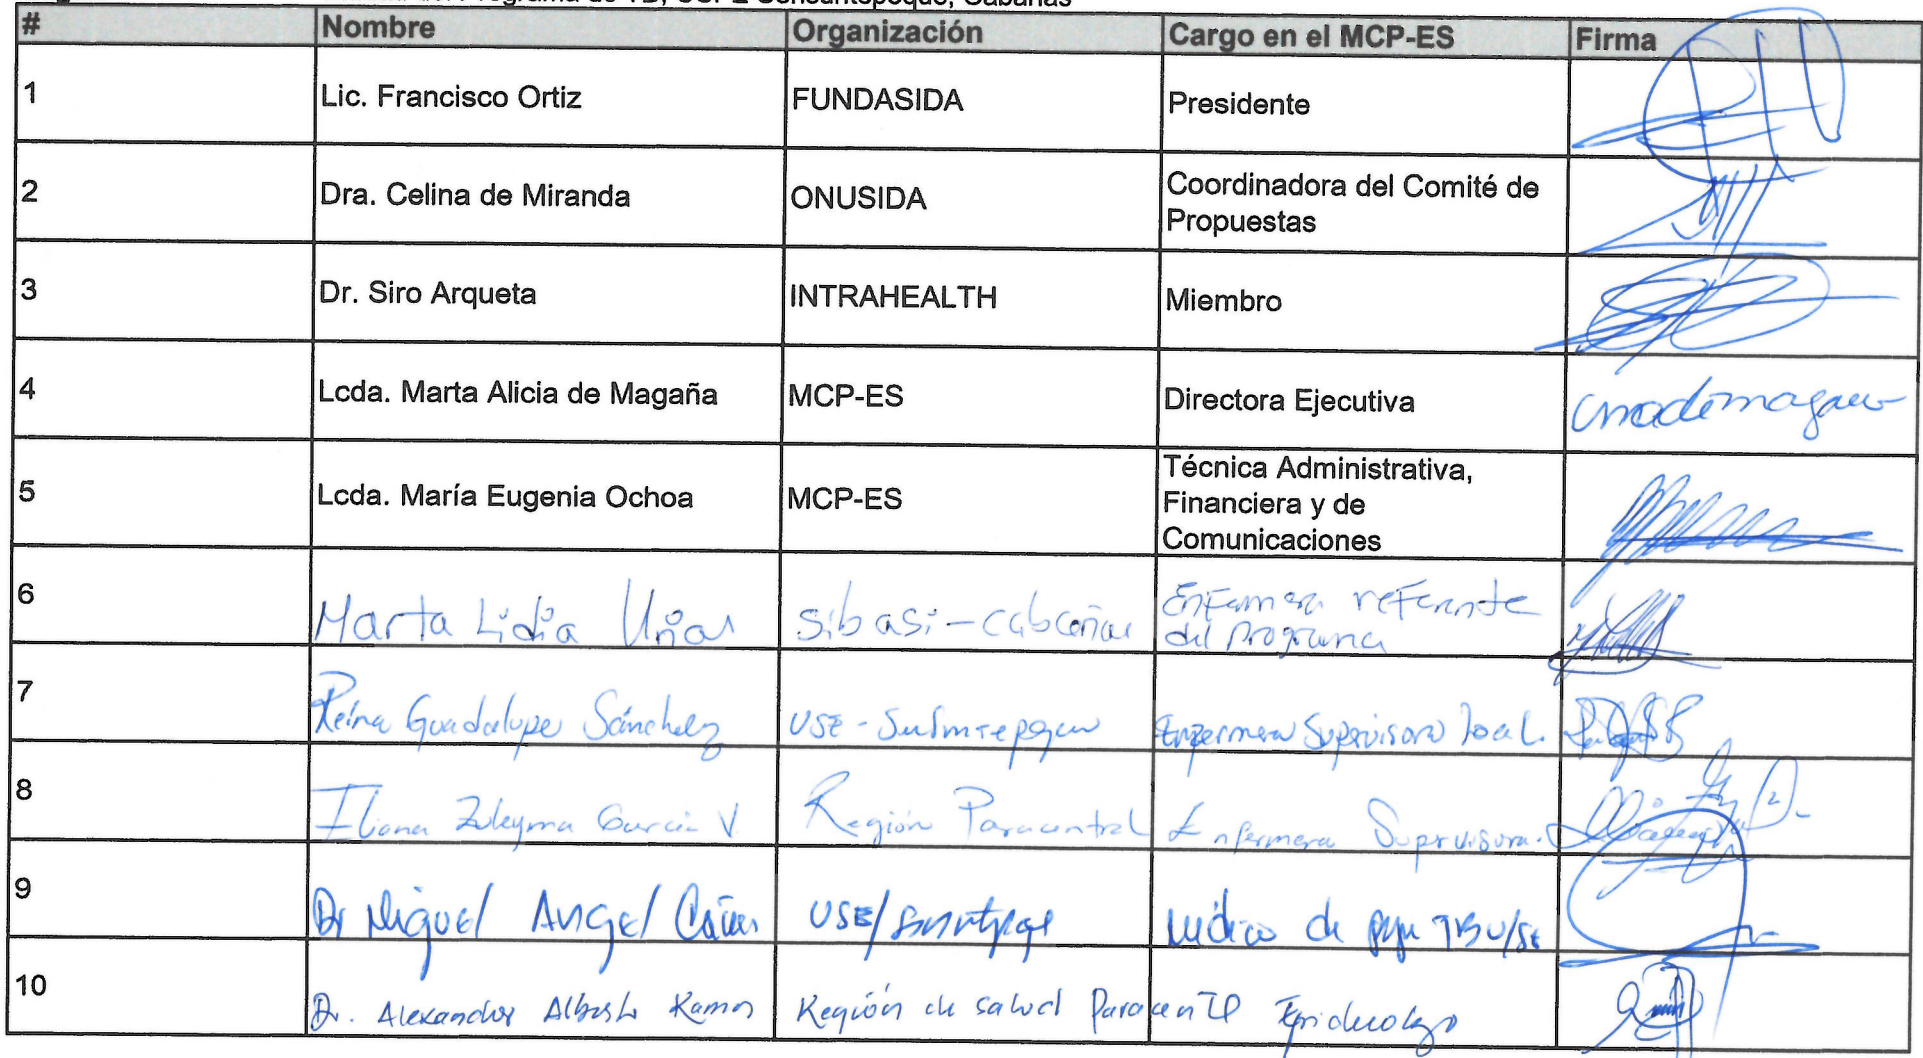 # Nombre Organización Cargo en el MCP-ES Firma
1 Lic. Francisco Ortiz FUNDASIDA Presidente
2 Dra. Celina de Miranda ONUSIDA Coordinadora del Comité de
Propuestas
3 Dr. Siro Arqueta INTRAHEALTH Miembro
4 Lcda. Marta Alicia de Magaña MCP-ES Directora Ejecutiva
5 Lcda. María Eugenia Ochoa MCP-ES Técnica Administrativa,
Financiera y de
Comunicaciones
6 Marta Lidia Sibasi - Cabañas Enfermera referente
del Programa
7 Reina Guadalupe Sánchez Enfermera Supervisora local.
8 Iliana Zuleyma García V Región Paracentral Enfermera Supervisora.
9 Dr Miguel Angel Médico de
10 Dr. Alexander Alberto Ramos Región de Salud